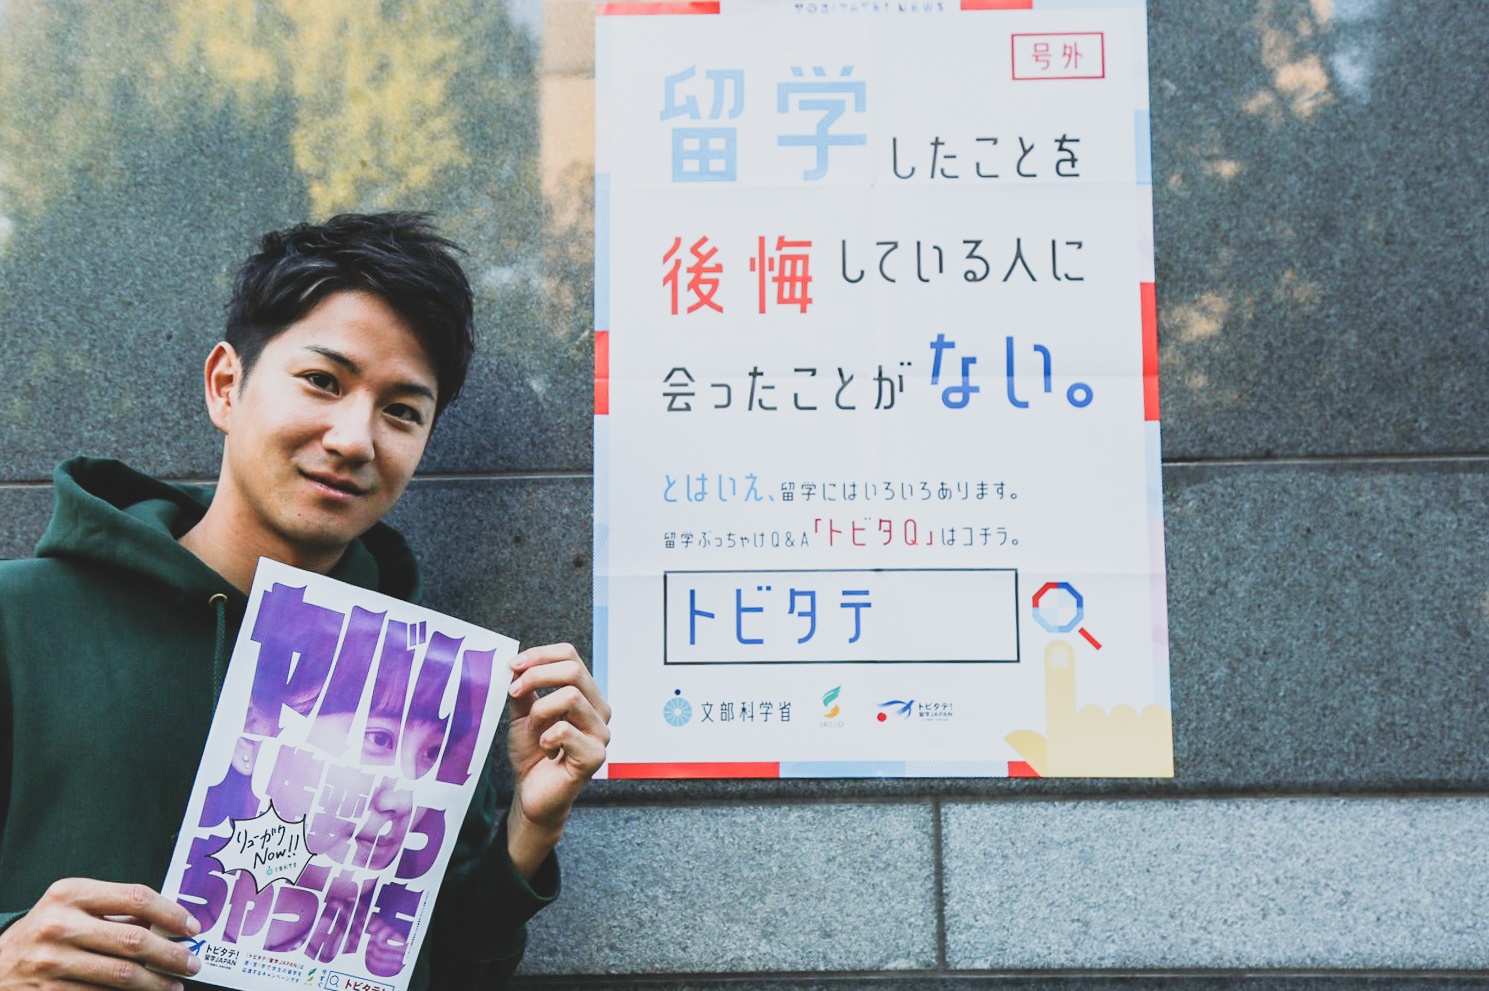 TOBITATE! NEWS
号外
留学したことを
後悔している人に
会ったことがない。
とはいえ、留学にはいろいろあります。
留学ぶっちゃけQ&A「トビタQ」はコチラ。
トビタテ
文部科学省
JASSO
トビタテ!
留学JAPAN
ヤバい
人生変わっ
ちゃうかも
リューガク
Now!!
トビタテ!
留学JAPAN
「トビタテ!留学JAPAN」は
トビタテ!